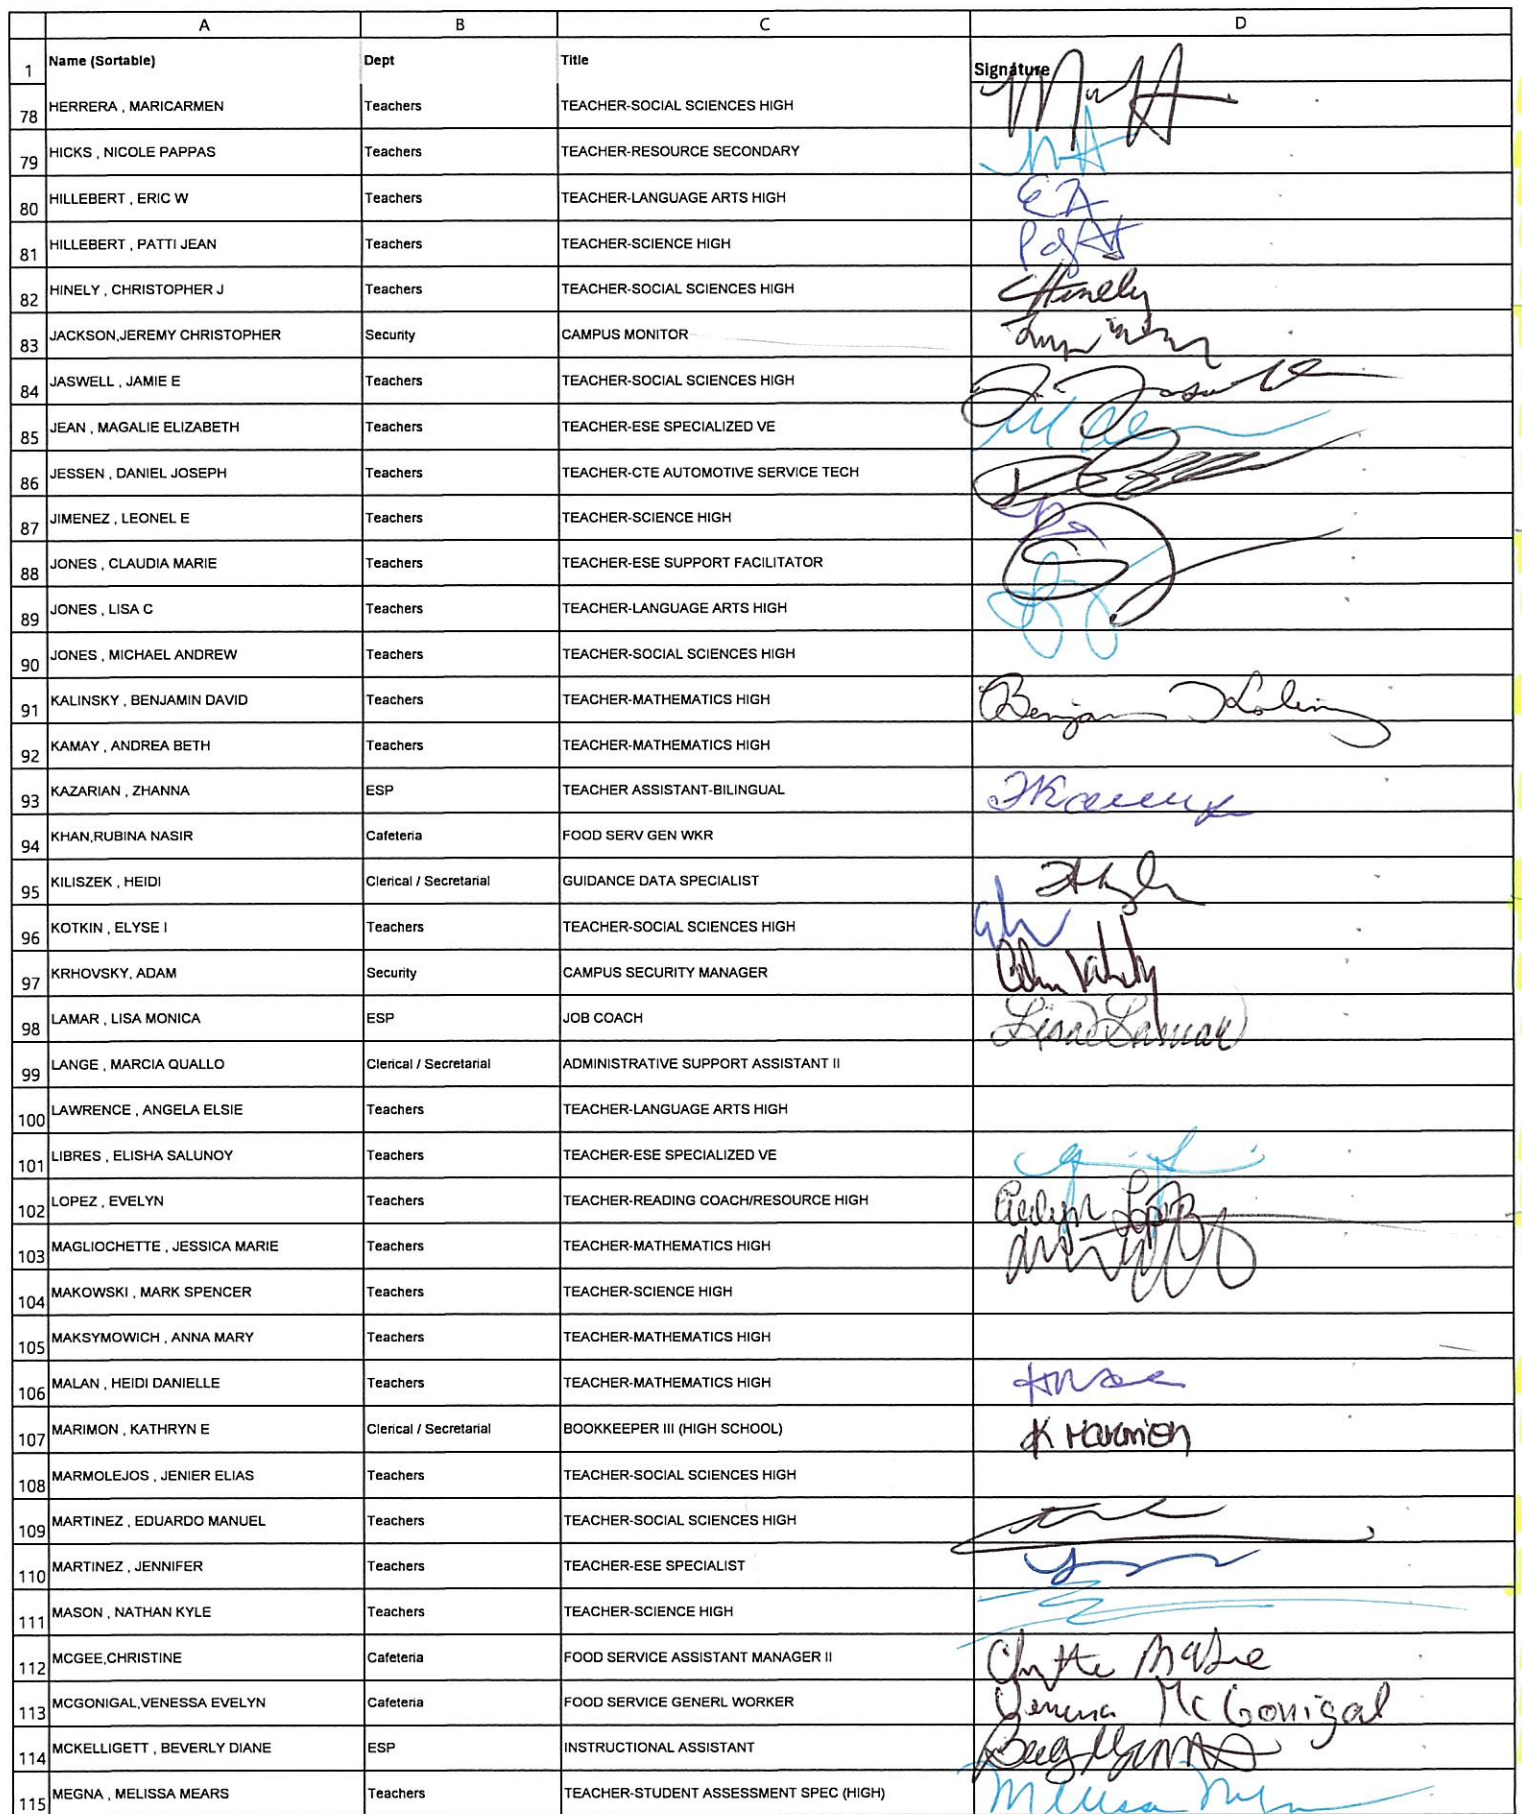 A B C D
1 Name (Sortable) Dept Title Signature
78 HERRERA , MARICARMEN Teachers TEACHER-SOCIAL SCIENCES HIGH
79 HICKS , NICOLE PAPPAS Teachers TEACHER-RESOURCE SECONDARY
80 HILLEBERT , ERIC W Teachers TEACHER-LANGUAGE ARTS HIGH
81 HILLEBERT , PATTI JEAN Teachers TEACHER-SCIENCE HIGH
82 HINELY , CHRISTOPHER J Teachers TEACHER-SOCIAL SCIENCES HIGH CHinely
83 JACKSON,JEREMY CHRISTOPHER Security CAMPUS MONITOR
84 JASWELL , JAMIE E Teachers TEACHER-SOCIAL SCIENCES HIGH
85 JEAN , MAGALIE ELIZABETH Teachers TEACHER-ESE SPECIALIZED VE
86 JESSEN , DANIEL JOSEPH Teachers TEACHER-CTE AUTOMOTIVE SERVICE TECH
87 JIMENEZ , LEONEL E Teachers TEACHER-SCIENCE HIGH
88 JONES , CLAUDIA MARIE Teachers TEACHER-ESE SUPPORT FACILITATOR
89 JONES , LISA C Teachers TEACHER-LANGUAGE ARTS HIGH
90 JONES , MICHAEL ANDREW Teachers TEACHER-SOCIAL SCIENCES HIGH
91 KALINSKY , BENJAMIN DAVID Teachers TEACHER-MATHEMATICS HIGH
92 KAMAY , ANDREA BETH Teachers TEACHER-MATHEMATICS HIGH
93 KAZARIAN , ZHANNA ESP TEACHER ASSISTANT-BILINGUAL
94 KHAN,RUBINA NASIR Cafeteria FOOD SERV GEN WKR
95 KILISZEK , HEIDI Clerical / Secretarial GUIDANCE DATA SPECIALIST
96 KOTKIN , ELYSE I Teachers TEACHER-SOCIAL SCIENCES HIGH
97 KRHOVSKY, ADAM Security CAMPUS SECURITY MANAGER
98 LAMAR , LISA MONICA ESP JOB COACH Lisa Lamar
99 LANGE , MARCIA QUALLO Clerical / Secretarial ADMINISTRATIVE SUPPORT ASSISTANT II
100 LAWRENCE , ANGELA ELSIE Teachers TEACHER-LANGUAGE ARTS HIGH
101 LIBRES , ELISHA SALUNOY Teachers TEACHER-ESE SPECIALIZED VE
102 LOPEZ , EVELYN Teachers TEACHER-READING COACH/RESOURCE HIGH Evelyn Lopez
103 MAGLIOCHETTE , JESSICA MARIE Teachers TEACHER-MATHEMATICS HIGH
104 MAKOWSKI , MARK SPENCER Teachers TEACHER-SCIENCE HIGH
105 MAKSYMOWICH , ANNA MARY Teachers TEACHER-MATHEMATICS HIGH
106 MALAN , HEIDI DANIELLE Teachers TEACHER-MATHEMATICS HIGH
107 MARIMON , KATHRYN E Clerical / Secretarial BOOKKEEPER III (HIGH SCHOOL) K Marimon
108 MARMOLEJOS , JENIER ELIAS Teachers TEACHER-SOCIAL SCIENCES HIGH
109 MARTINEZ , EDUARDO MANUEL Teachers TEACHER-SOCIAL SCIENCES HIGH
110 MARTINEZ , JENNIFER Teachers TEACHER-ESE SPECIALIST
111 MASON , NATHAN KYLE Teachers TEACHER-SCIENCE HIGH
112 MCGEE,CHRISTINE Cafeteria FOOD SERVICE ASSISTANT MANAGER II
113 MCGONIGAL,VENESSA EVELYN Cafeteria FOOD SERVICE GENERL WORKER Venessa McGonigal
114 MCKELLIGETT , BEVERLY DIANE ESP INSTRUCTIONAL ASSISTANT
115 MEGNA , MELISSA MEARS Teachers TEACHER-STUDENT ASSESSMENT SPEC (HIGH) Melissa